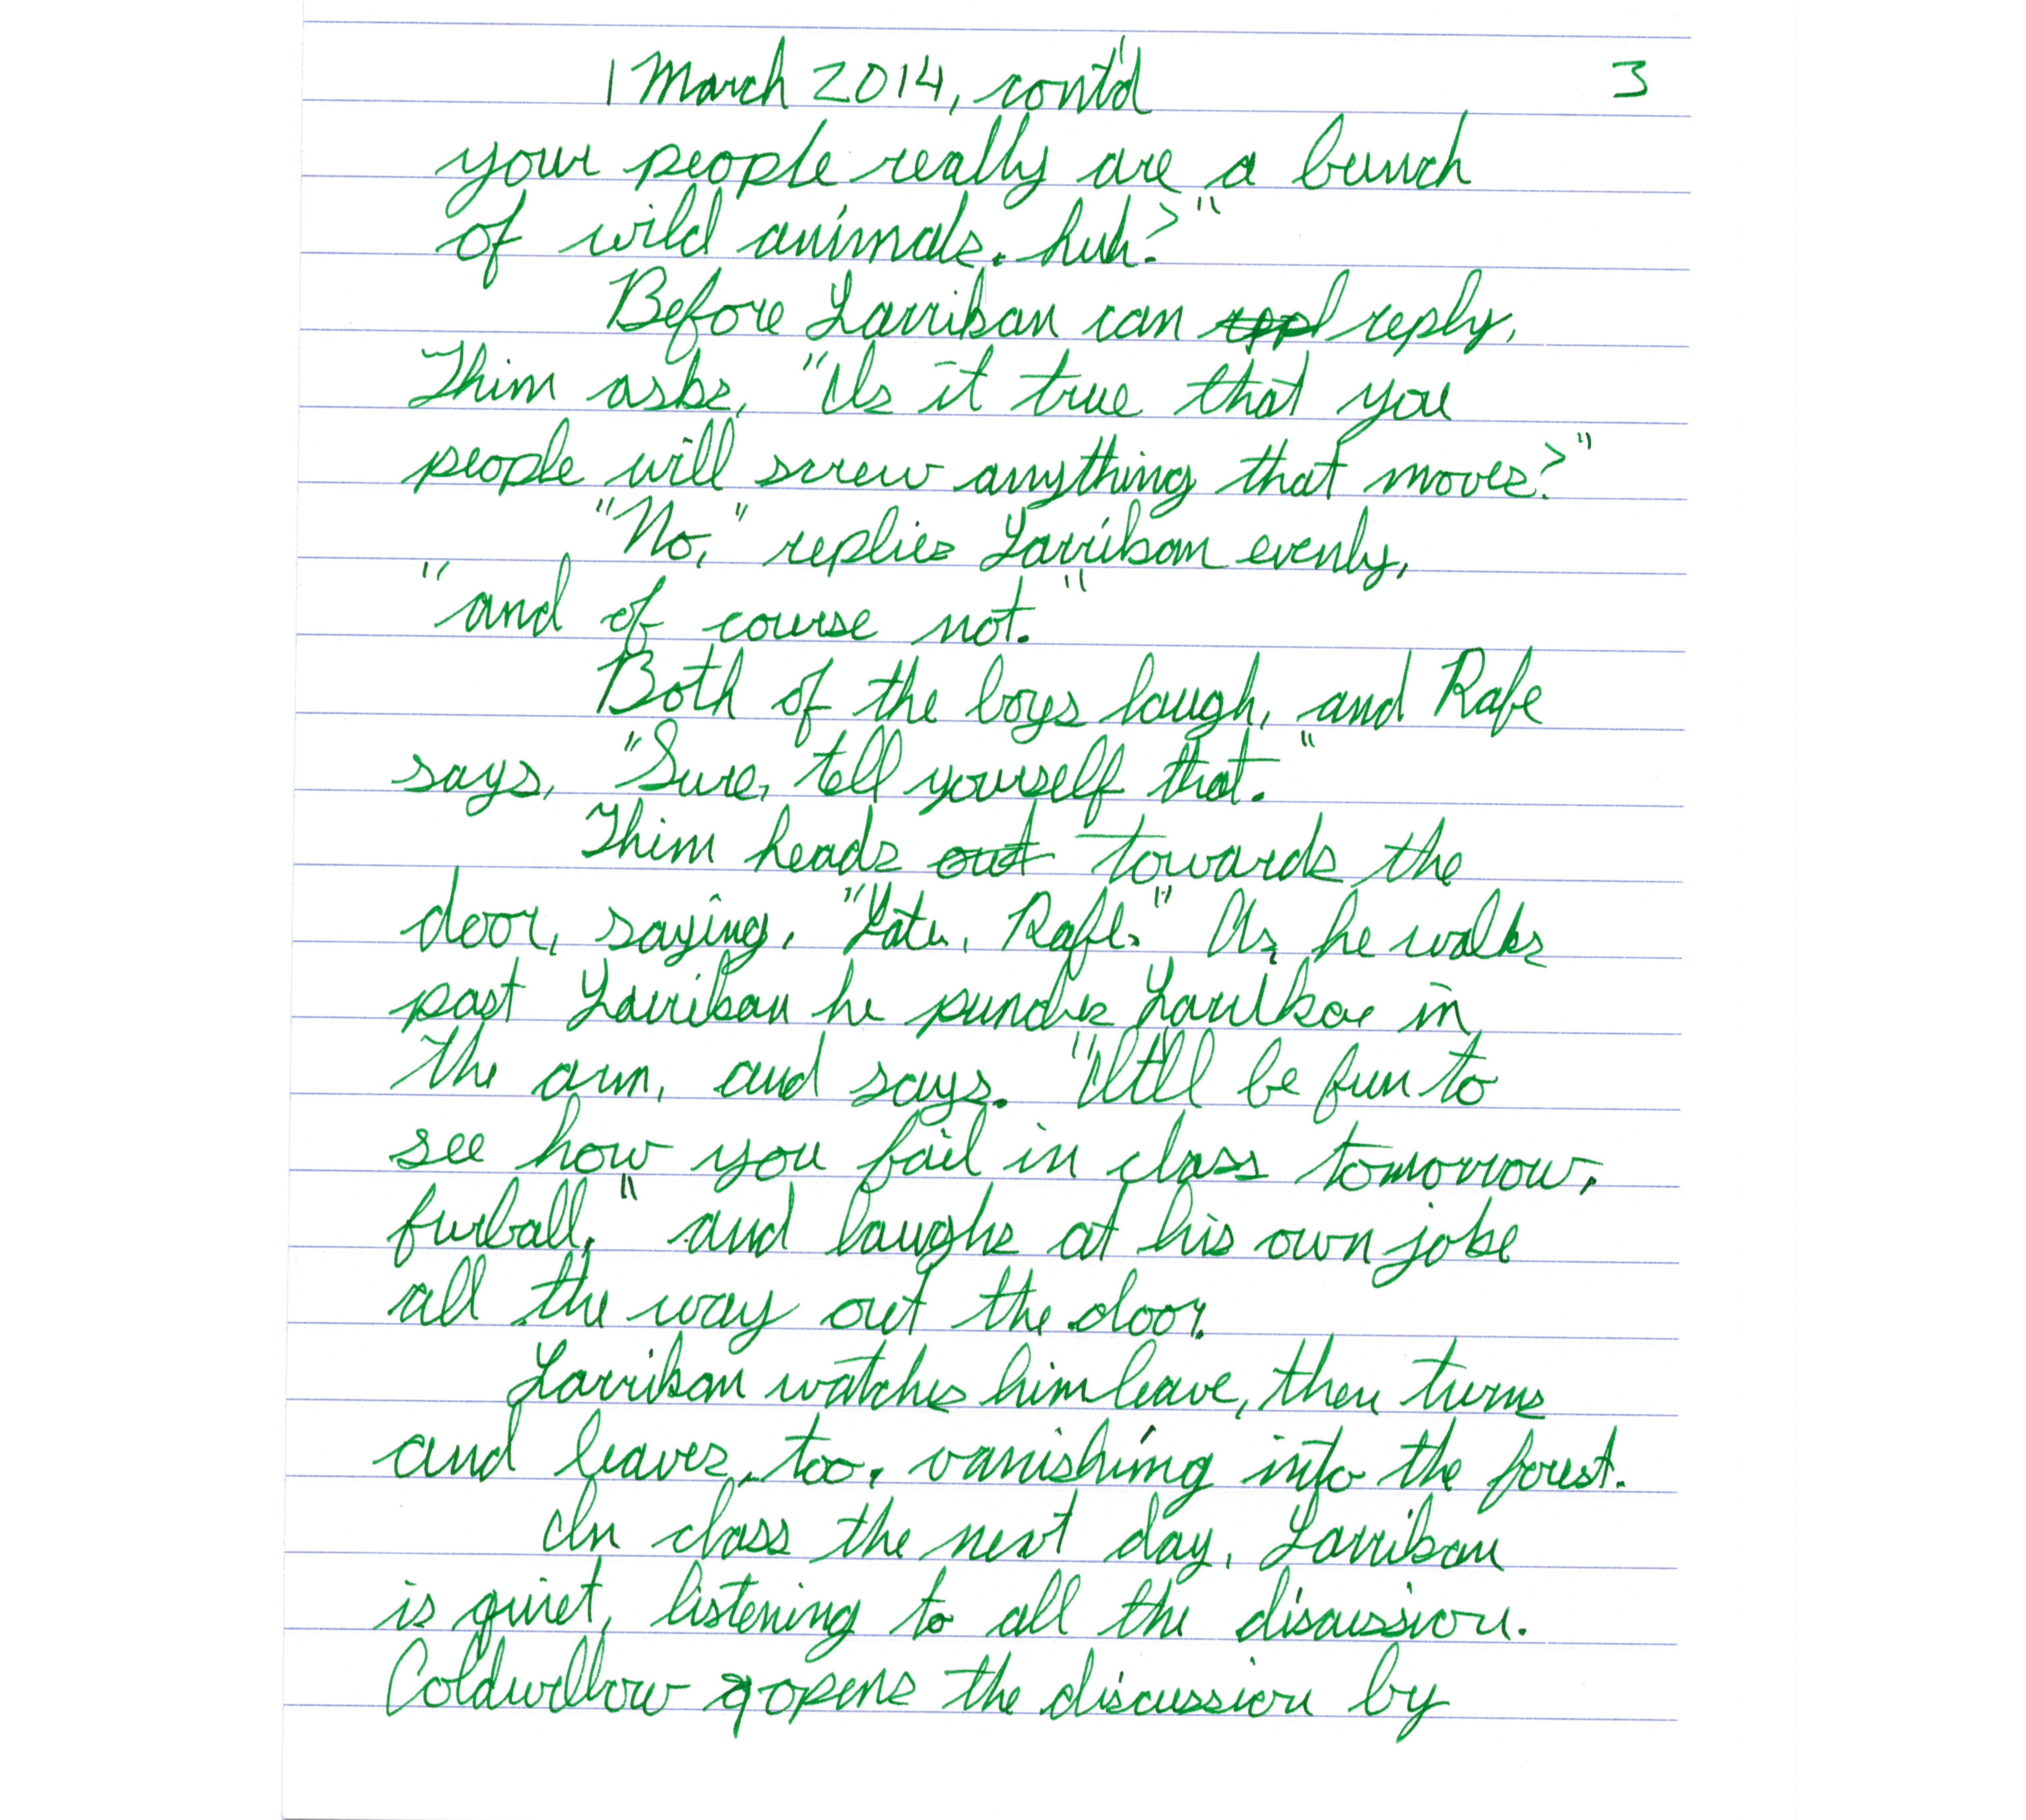 1 March 2014, cont'd 3
your people really are a bunch
of wild animals, huh?"
Before Larrikan can repl reply,
Thim asks, "Is it true that you
people will screw anything that moves?"
"No," replies Larrikan evenly,
"and of course not."
Both of the boys laugh, and Rafe
says, "Sure, tell yourself that."
Thim heads out towards the
door, saying, "Later, Rafe." As he walks
past Larrikan he punches Larrikan in
the arm, and says, "It'll be fun to
see how you fail in class tomorrow,
furball," and laughs at his own joke
all the way out the door.
Larrikan watches him leave, then turns
and leaves, too, vanishing into the forest.
In class the next day, Larrikan
is quiet, listening to all the discussion.
Coldwillow opens the discussion by